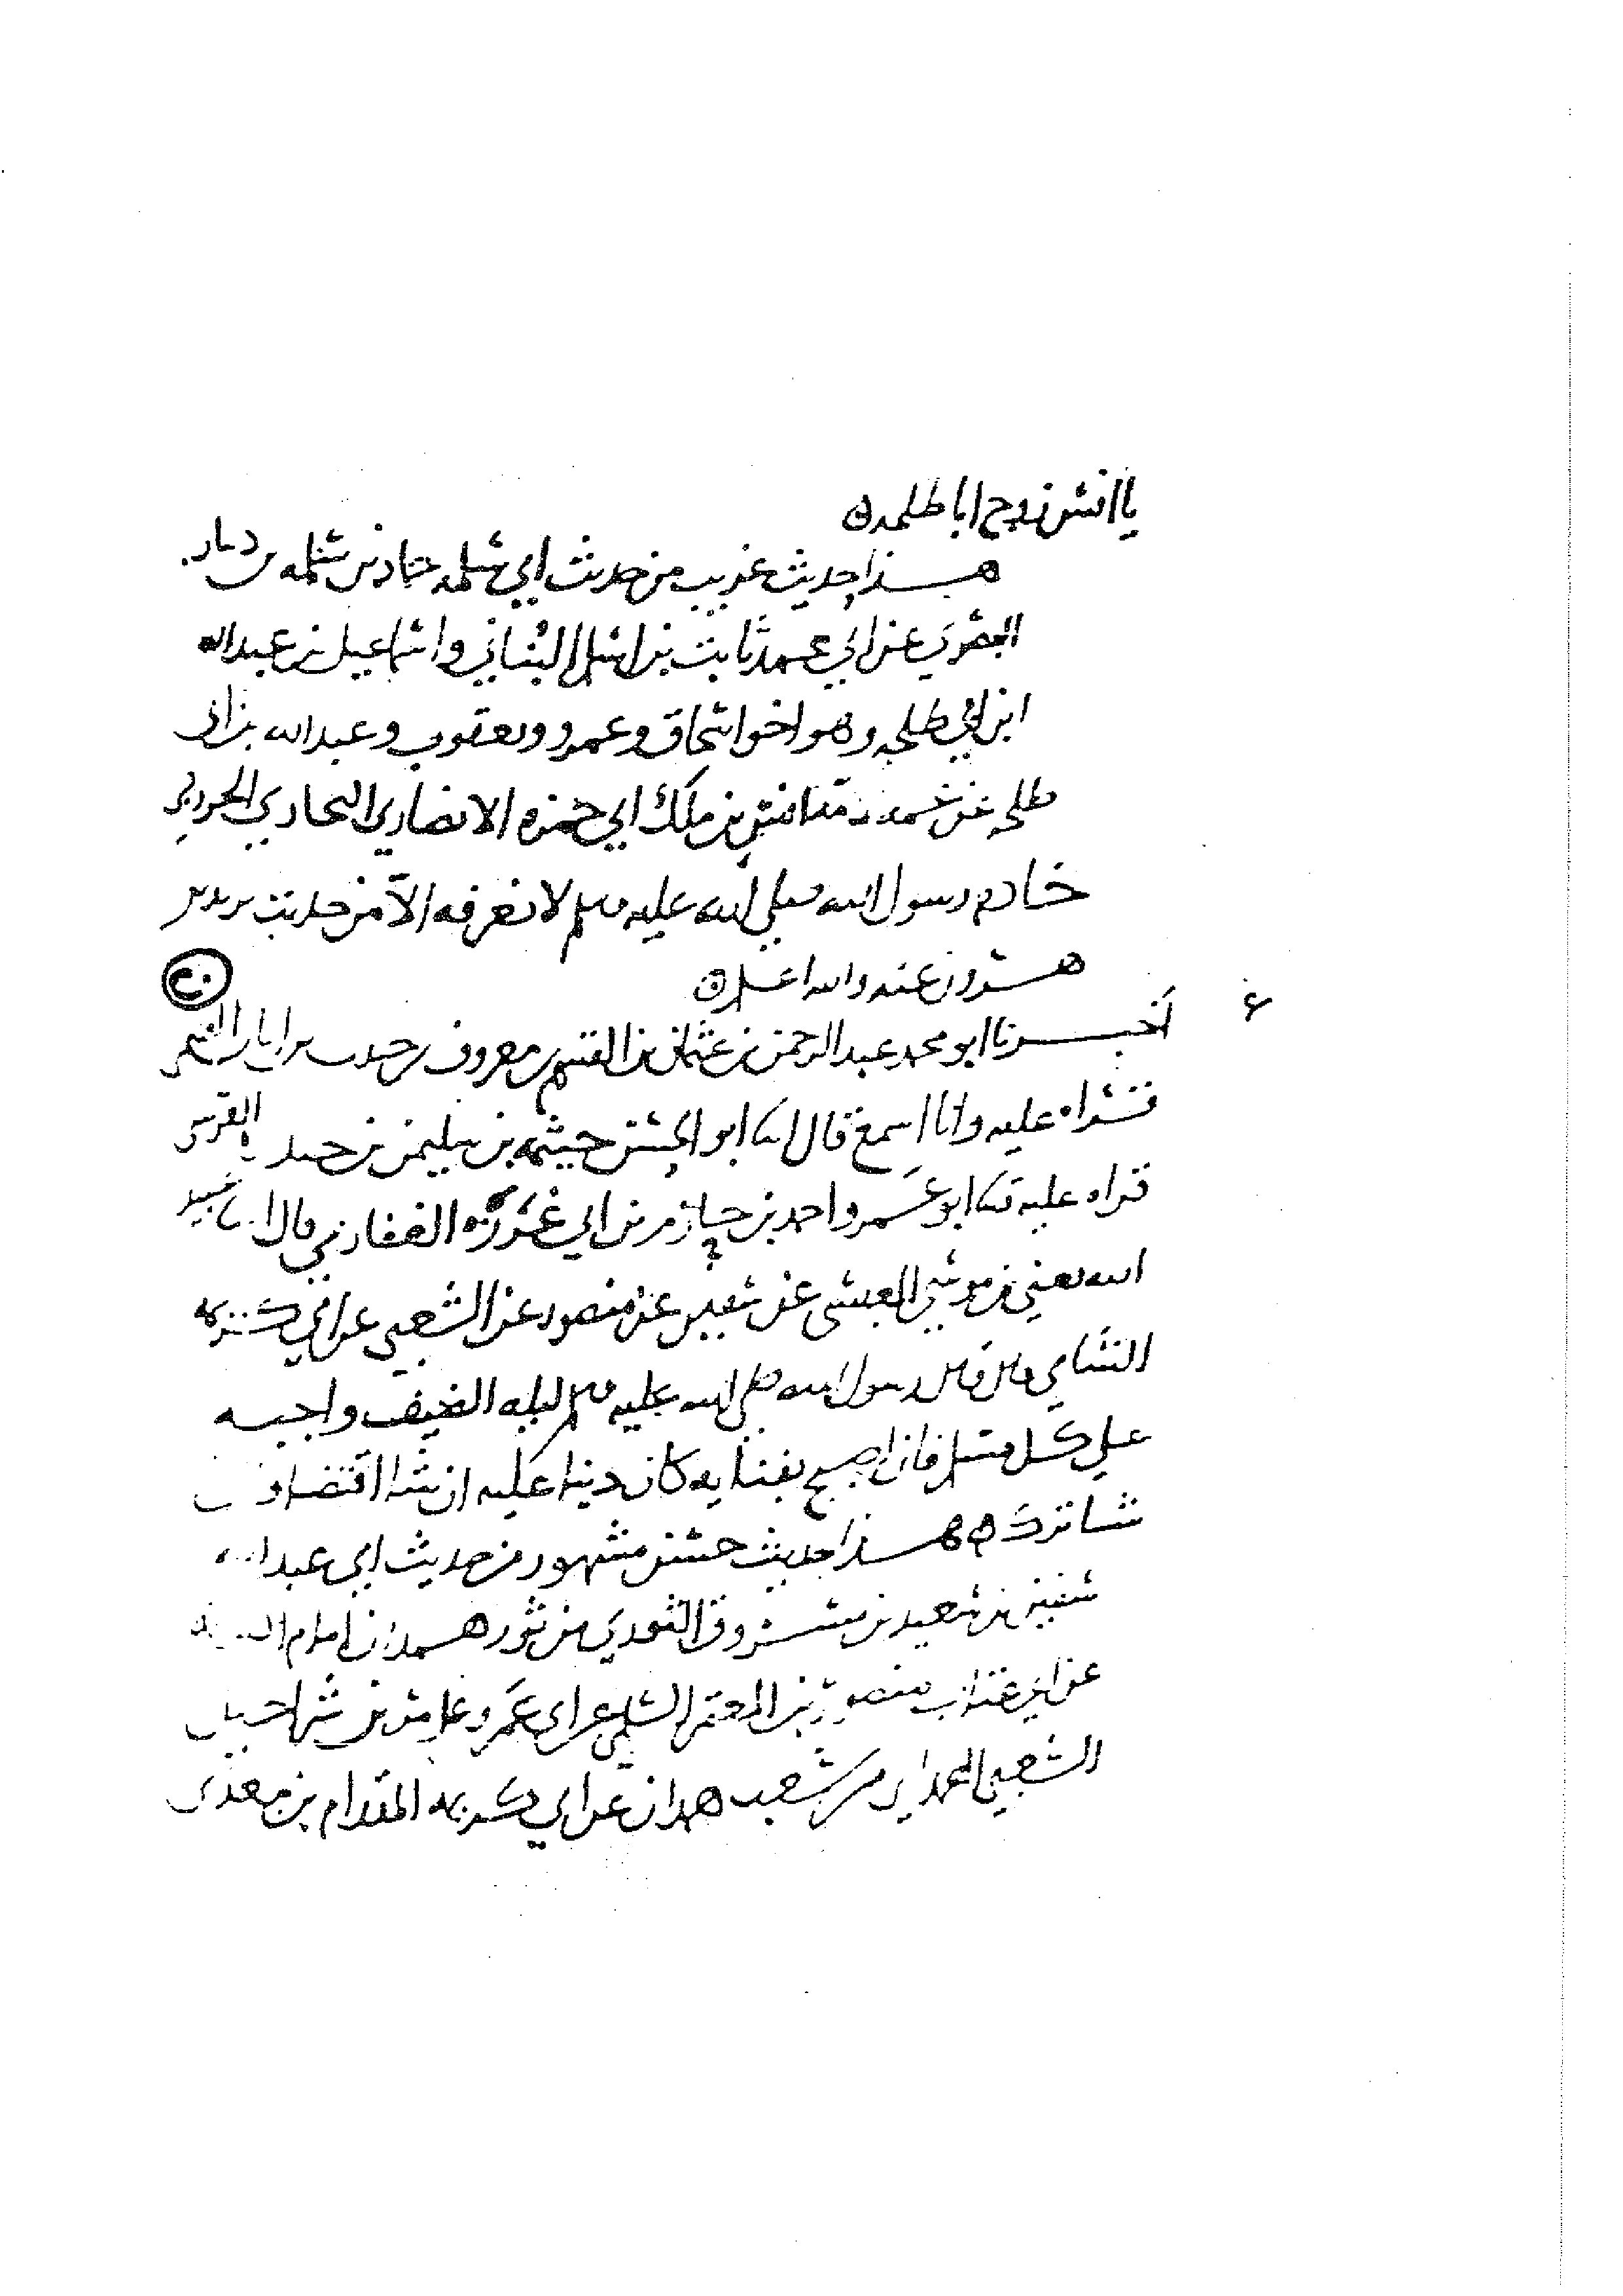 يا انس زوج ابا طلحه ه
هذا حديث غريب من حديث ابي سلمه حماد بن سلمه بن دينار
البصري عن ابي محمد ثابت بن اسلم البناني واسماعيل بن عبدالله
ابن ابي طلحه وهو اخو اسحاق وعمرو ويعقوب وعبدالله بن ابي
طلحه عن عمه انس بن ملك ابي حمزه الانصاري النجاري الخزرجي
خادم رسول الله صلى الله عليه وسلم لا نعرفه الا من حديث يزيد بن
هرون عنه والله اعلم ه
اخبرنا ابو محمد عبد الرحمن بن عثمان بن القسم بن معروف بن حبيب بن ابان التميمي
قراه عليه وانا اسمع قال انا ابو الحسن خيثمه بن سليمن بن حيدره القرشي
قراه عليه ثنا ابو عمرو احمد بن حازم بن ابي غرزه الغفاري قال انا عبيد
الله يعني بن موسى العبسي عن سفين عن منصور عن الشعبي عن ابي كريمه
الشامي قال قال رسول الله صلى الله عليه وسلم ليله الضيف واجبه
على كل مسلم فان اصبح بفنايه كان دينا عليه ان شا اقتضا وان
شا تركه ه هذا حديث حسن مشهور من حديث ابي عبدالله
سفين بن سعيد بن مسروق الثوري من ثور همدان امام
عن ابي عتاب منصور بن المعتمر السلمي عن ابي عمرو عامر بن شراحيل
الشعبي الهمداني من شعب همدان عن ابي كريمه المقدام بن معدي